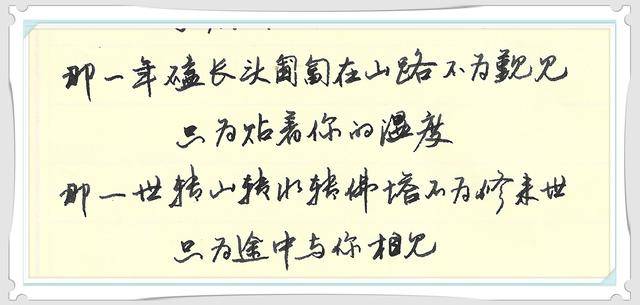 那一年磕长头匍匐在山路不为觐见
只为贴着你的温度
那一世转山转水转佛塔不为修来世
只为途中与你相见